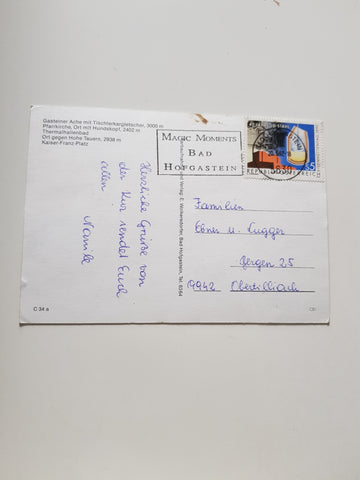 Gasteiner Ache mit Tischlerkargletscher, 3000 m
Pfarrkirche, Ort mit Hundskopf, 2402 m
Thermalhallenbad
Ort gegen Hohe Tauern, 2938 m
Kaiser-Franz-Platz
MAGIC MOMENTS
BAD
HOFGASTEIN
5630
S5
REPUBLIK ÖSTERREICH
Herzliche Grüße von
der Kur sendet Euch
allen
Familien
u. Lugger
Bergen 25
9942 Obertilliach
Verlag: C. Wolkersdorfer, Bad Hofgastein, Tel. 6264
C 34 a